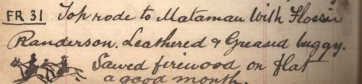 FR 31 Top rode to Matamau with Flossie
Randerson. Leathered & Greased buggy.
Sawed firewood on flat
a good month.